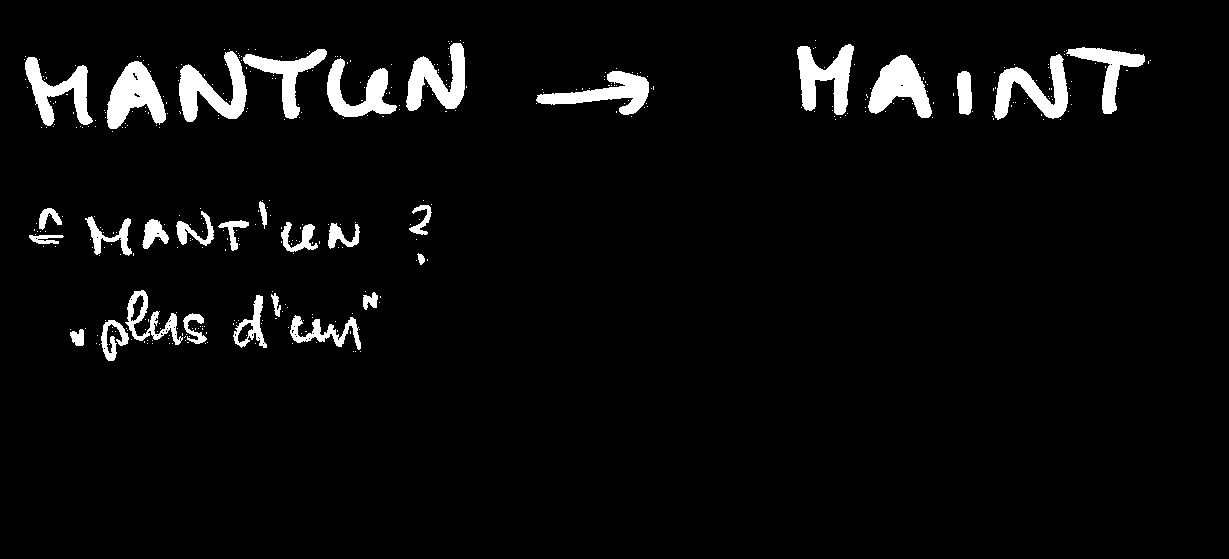 MANTUN → MAINT
≙ MANT'UN ?
"plus d'un"